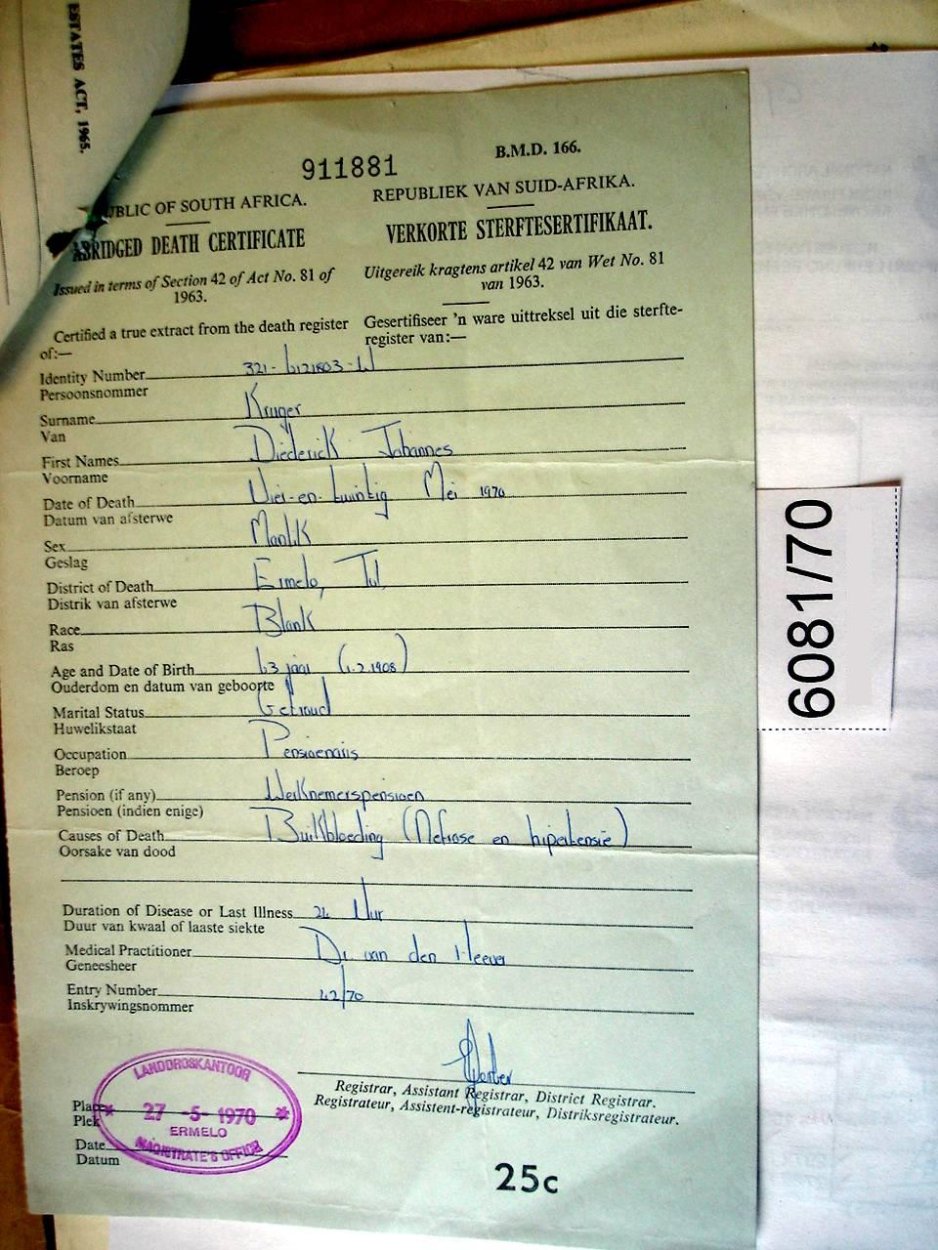 ESTATES ACT, 1965.
911881
B.M.D. 166.
UBLIC OF SOUTH AFRICA.
REPUBLIEK VAN SUID-AFRIKA.
ABRIDGED DEATH CERTIFICATE
VERKORTE STERFTESERTIFIKAAT.
Issued in terms of Section 42 of Act No. 81 of
1963.
Uitgereik kragtens artikel 42 van Wet No. 81
van 1963.
Certified a true extract from the death register
of:—
Gesertifiseer 'n ware uittreksel uit die sterfte-
register van:—
Identity Number
Persoonsnommer
Surname Kruger
Van
First Names Diederick Johannes
Voorname
Date of Death Vier-en-twintig Mei 1970
Datum van afsterwe
Sex Manlik
Geslag
District of Death Ermelo, Tvl
Distrik van afsterwe
Race Blank
Ras
Age and Date of Birth 63 jaar (1.2.1908)
Ouderdom en datum van geboorte
Marital Status Getroud
Huwelikstaat
Occupation Pensioenaris
Beroep
Pension (if any) Werknemerspensioen
Pensioen (indien enige)
Causes of Death Buikbloeding (Nefrose en hipertensie)
Oorsake van dood
Duration of Disease or Last Illness 24 Uur
Duur van kwaal of laaste siekte
Medical Practitioner Dr van den Heever
Geneesheer
Entry Number 42/70
Inskrywingsnommer
Registrar, Assistant Registrar, District Registrar.
Registrateur, Assistent-registrateur, Distriksregistrateur.
Plek
Date
Datum
LANDDROSKANTOOR
27 -5- 1970
ERMELO
MAGISTRATE'S OFFICE
25c
6081/70